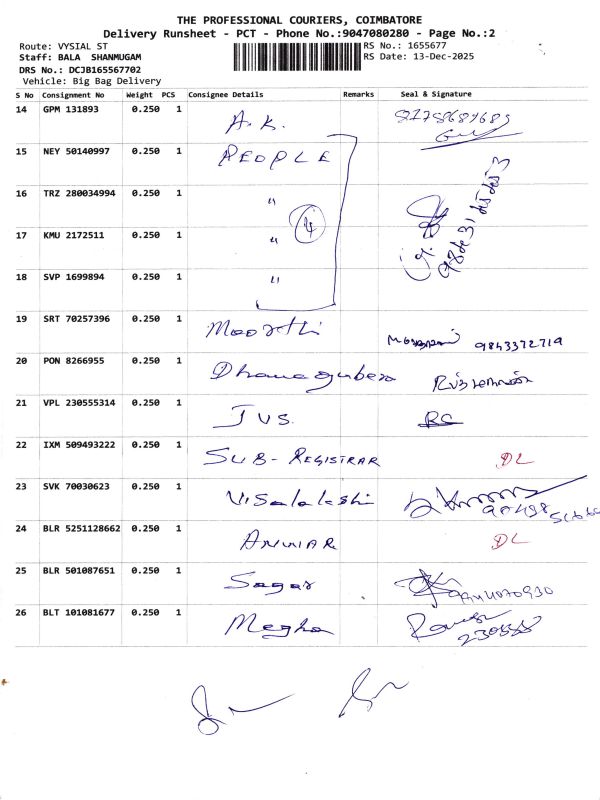 THE PROFESSIONAL COURIERS, COIMBATORE
Delivery Runsheet - PCT - Phone No.:9047080280 - Page No.:2
Route: VYSIAL ST
RS No.: 1655677
Staff: BALA SHANMUGAM
RS Date: 13-Dec-2025
DRS No.: DCJB165567702
Vehicle: Big Bag Delivery
S No Consignment No Weight PCS Consignee Details Remarks Seal & Signature
14 GPM 131893 0.250 1 A.K.
15 NEY 50140997 0.250 1 PEOPLE
16 TRZ 280034994 0.250 1 "
4
17 KMU 2172511 0.250 1 "
18 SVP 1699894 0.250 1 "
19 SRT 70257396 0.250 1 Moorthi 9843372719
20 PON 8266955 0.250 1 Dhanagubera
21 VPL 230555314 0.250 1 JVS. RC
22 IXM 509493222 0.250 1 SUB-REGISTRAR DL
23 SVK 70030623 0.250 1 Visalakshi
24 BLR 5251128662 0.250 1 ANWAR DL
25 BLR 501087651 0.250 1 Sagar
26 BLT 101081677 0.250 1 Megha